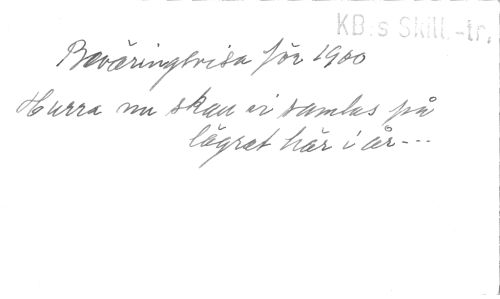 KB:s Skill.-tr.
Beväringsvisa för 1900
Hurra nu skall vi samlas på
lägret här i år---